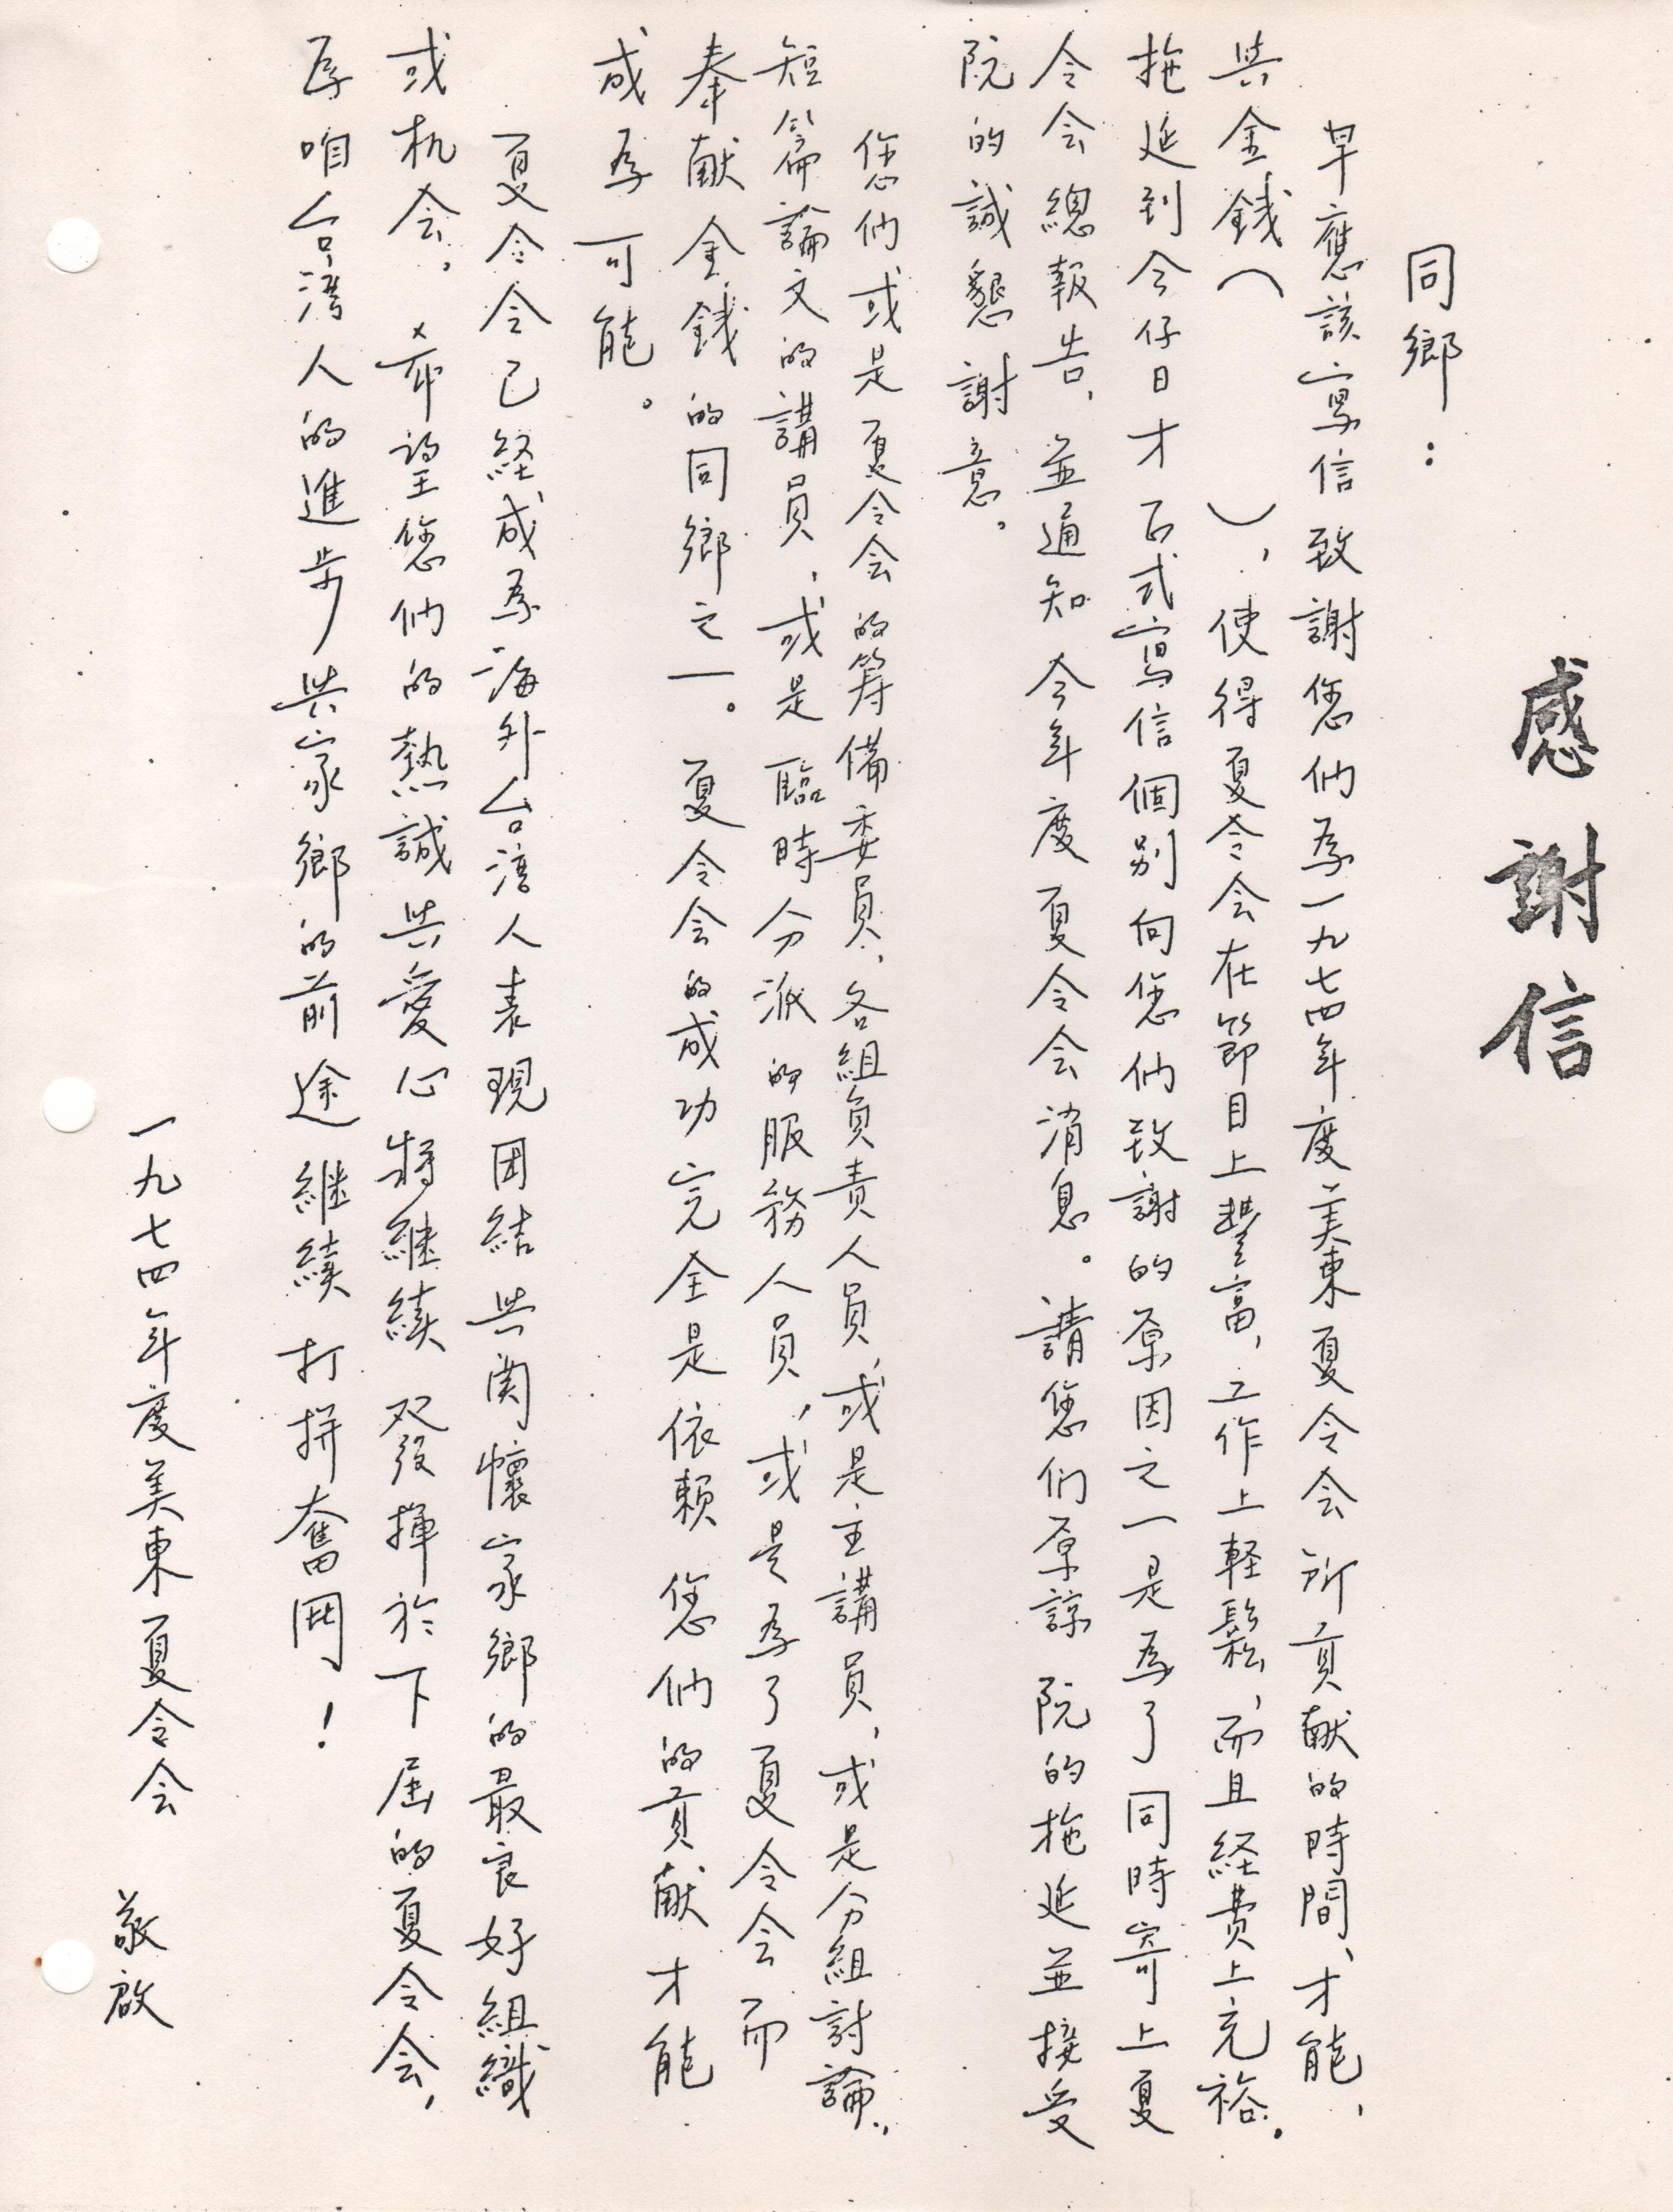 感謝信
同鄉：
早應該寫信致謝您們為一九七四年度美東夏令会所貢献的時間、才能、
与金錢（　　　），使得夏令会在節目上豐富，工作上軽鬆，而且経費上充裕。
拖延到今仔日才正式寫信個別向您们致謝的原因之一是為了同時寄上夏
令会總報告，並通知今年度夏令会消息。請您们原諒阮的拖延並接受
阮的誠懇謝意。
您们或是夏令会的筹備委員，各組負責人員，或是主講員，或是分組討論，
短篇論文的講員，或是臨時分派的服務人員，或是為了夏令会而
奉献金錢的同鄉之一。夏令会的成功完全是依賴您们的貢献才能
成為可能。
夏令会已経成為海外台湾人表現团結与関懷家鄉的最良好組織
或机会，希望您们的熱誠与愛心將継續發揮於下屆的夏令会，
為咱台湾人的進步与家鄉的前途継續打拼奮鬥！
一九七四年度美東夏令会　敬啟